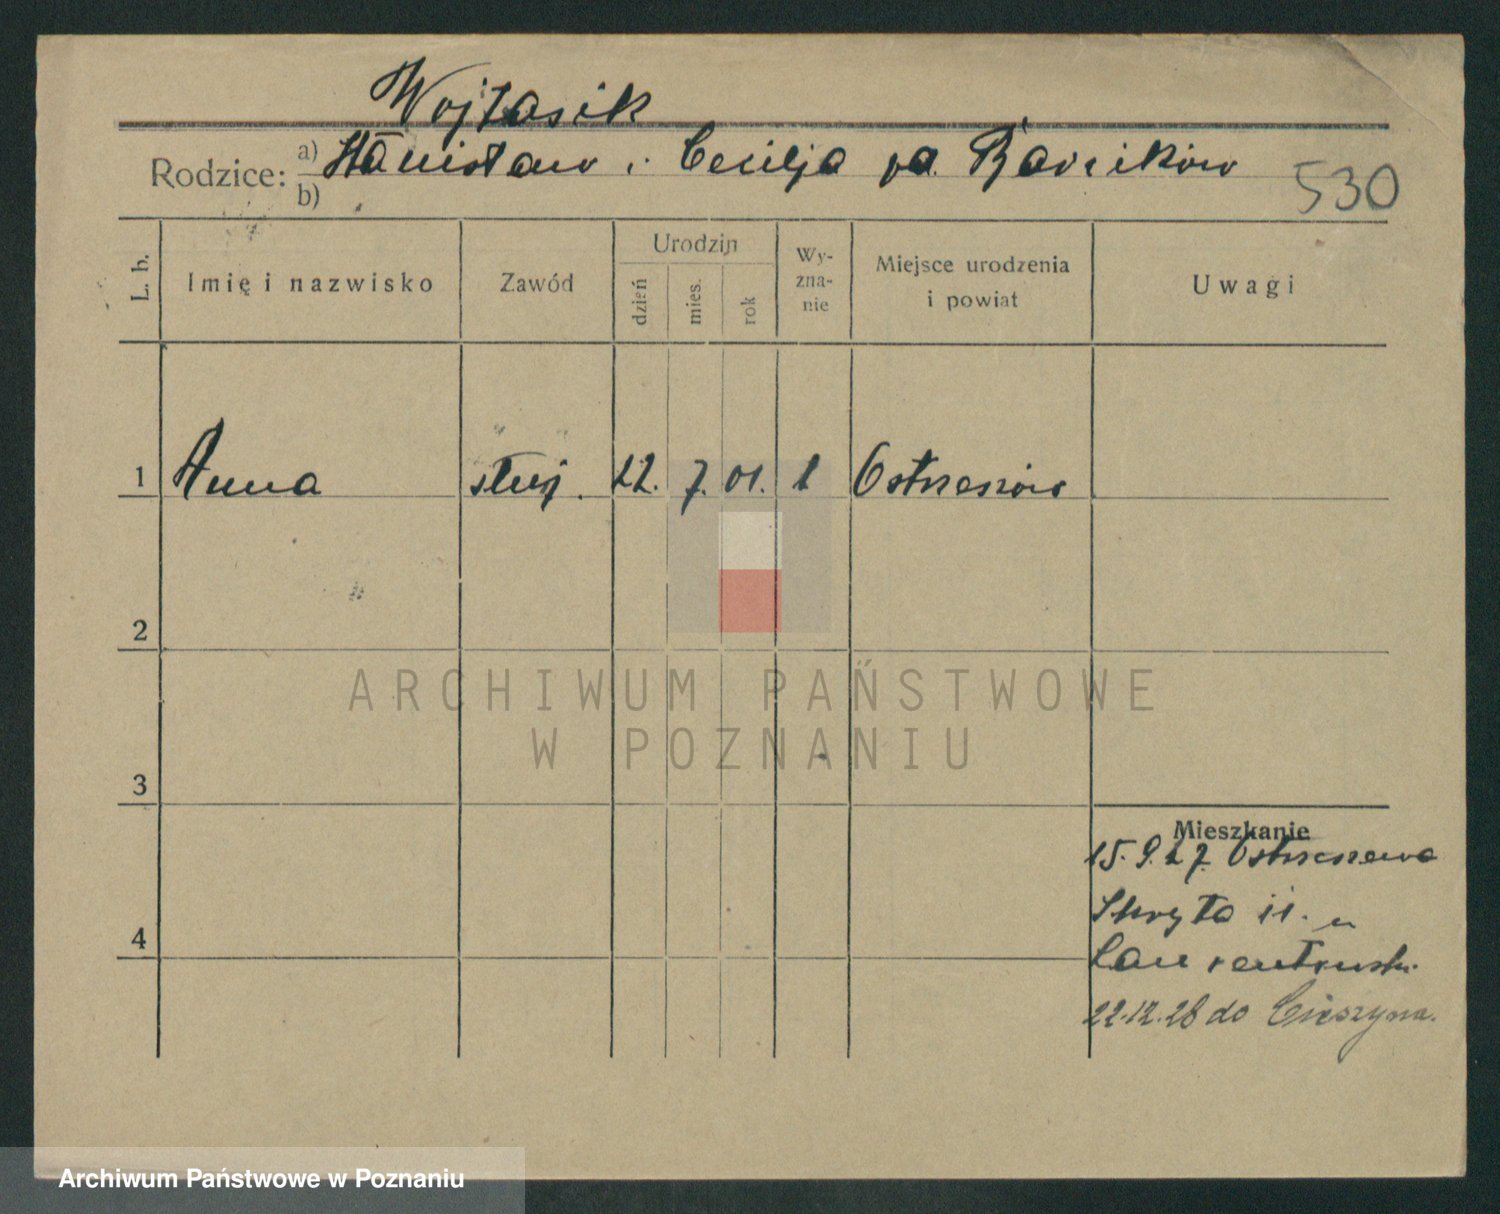 Wojtasik
Rodzice: a) Stanisław i Cecilja
b)
530
L. b.
Imię i nazwisko
Zawód
Urodzin
dzień
mies.
rok
Wy-
zna-
nie
Miejsce urodzenia
i powiat
Uwagi
1 Anna służ. 22. 7. 01. 1 Ostrzeszów
2
ARCHIWUM PAŃSTWOWE
W POZNANIU
3
Mieszkanie
15.9.27 Ostrzeszowa
4
22.12.28 do Cieszyna.
Archiwum Państwowe w Poznaniu